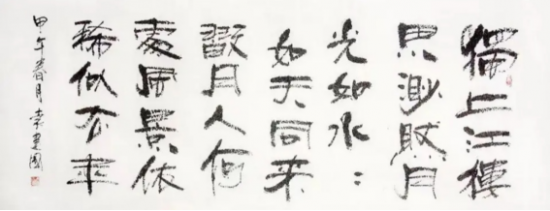 獨上江樓
思渺然月
光如水：
如天同来
翫月人何
處風景依
稀似去年
甲午春月李建國